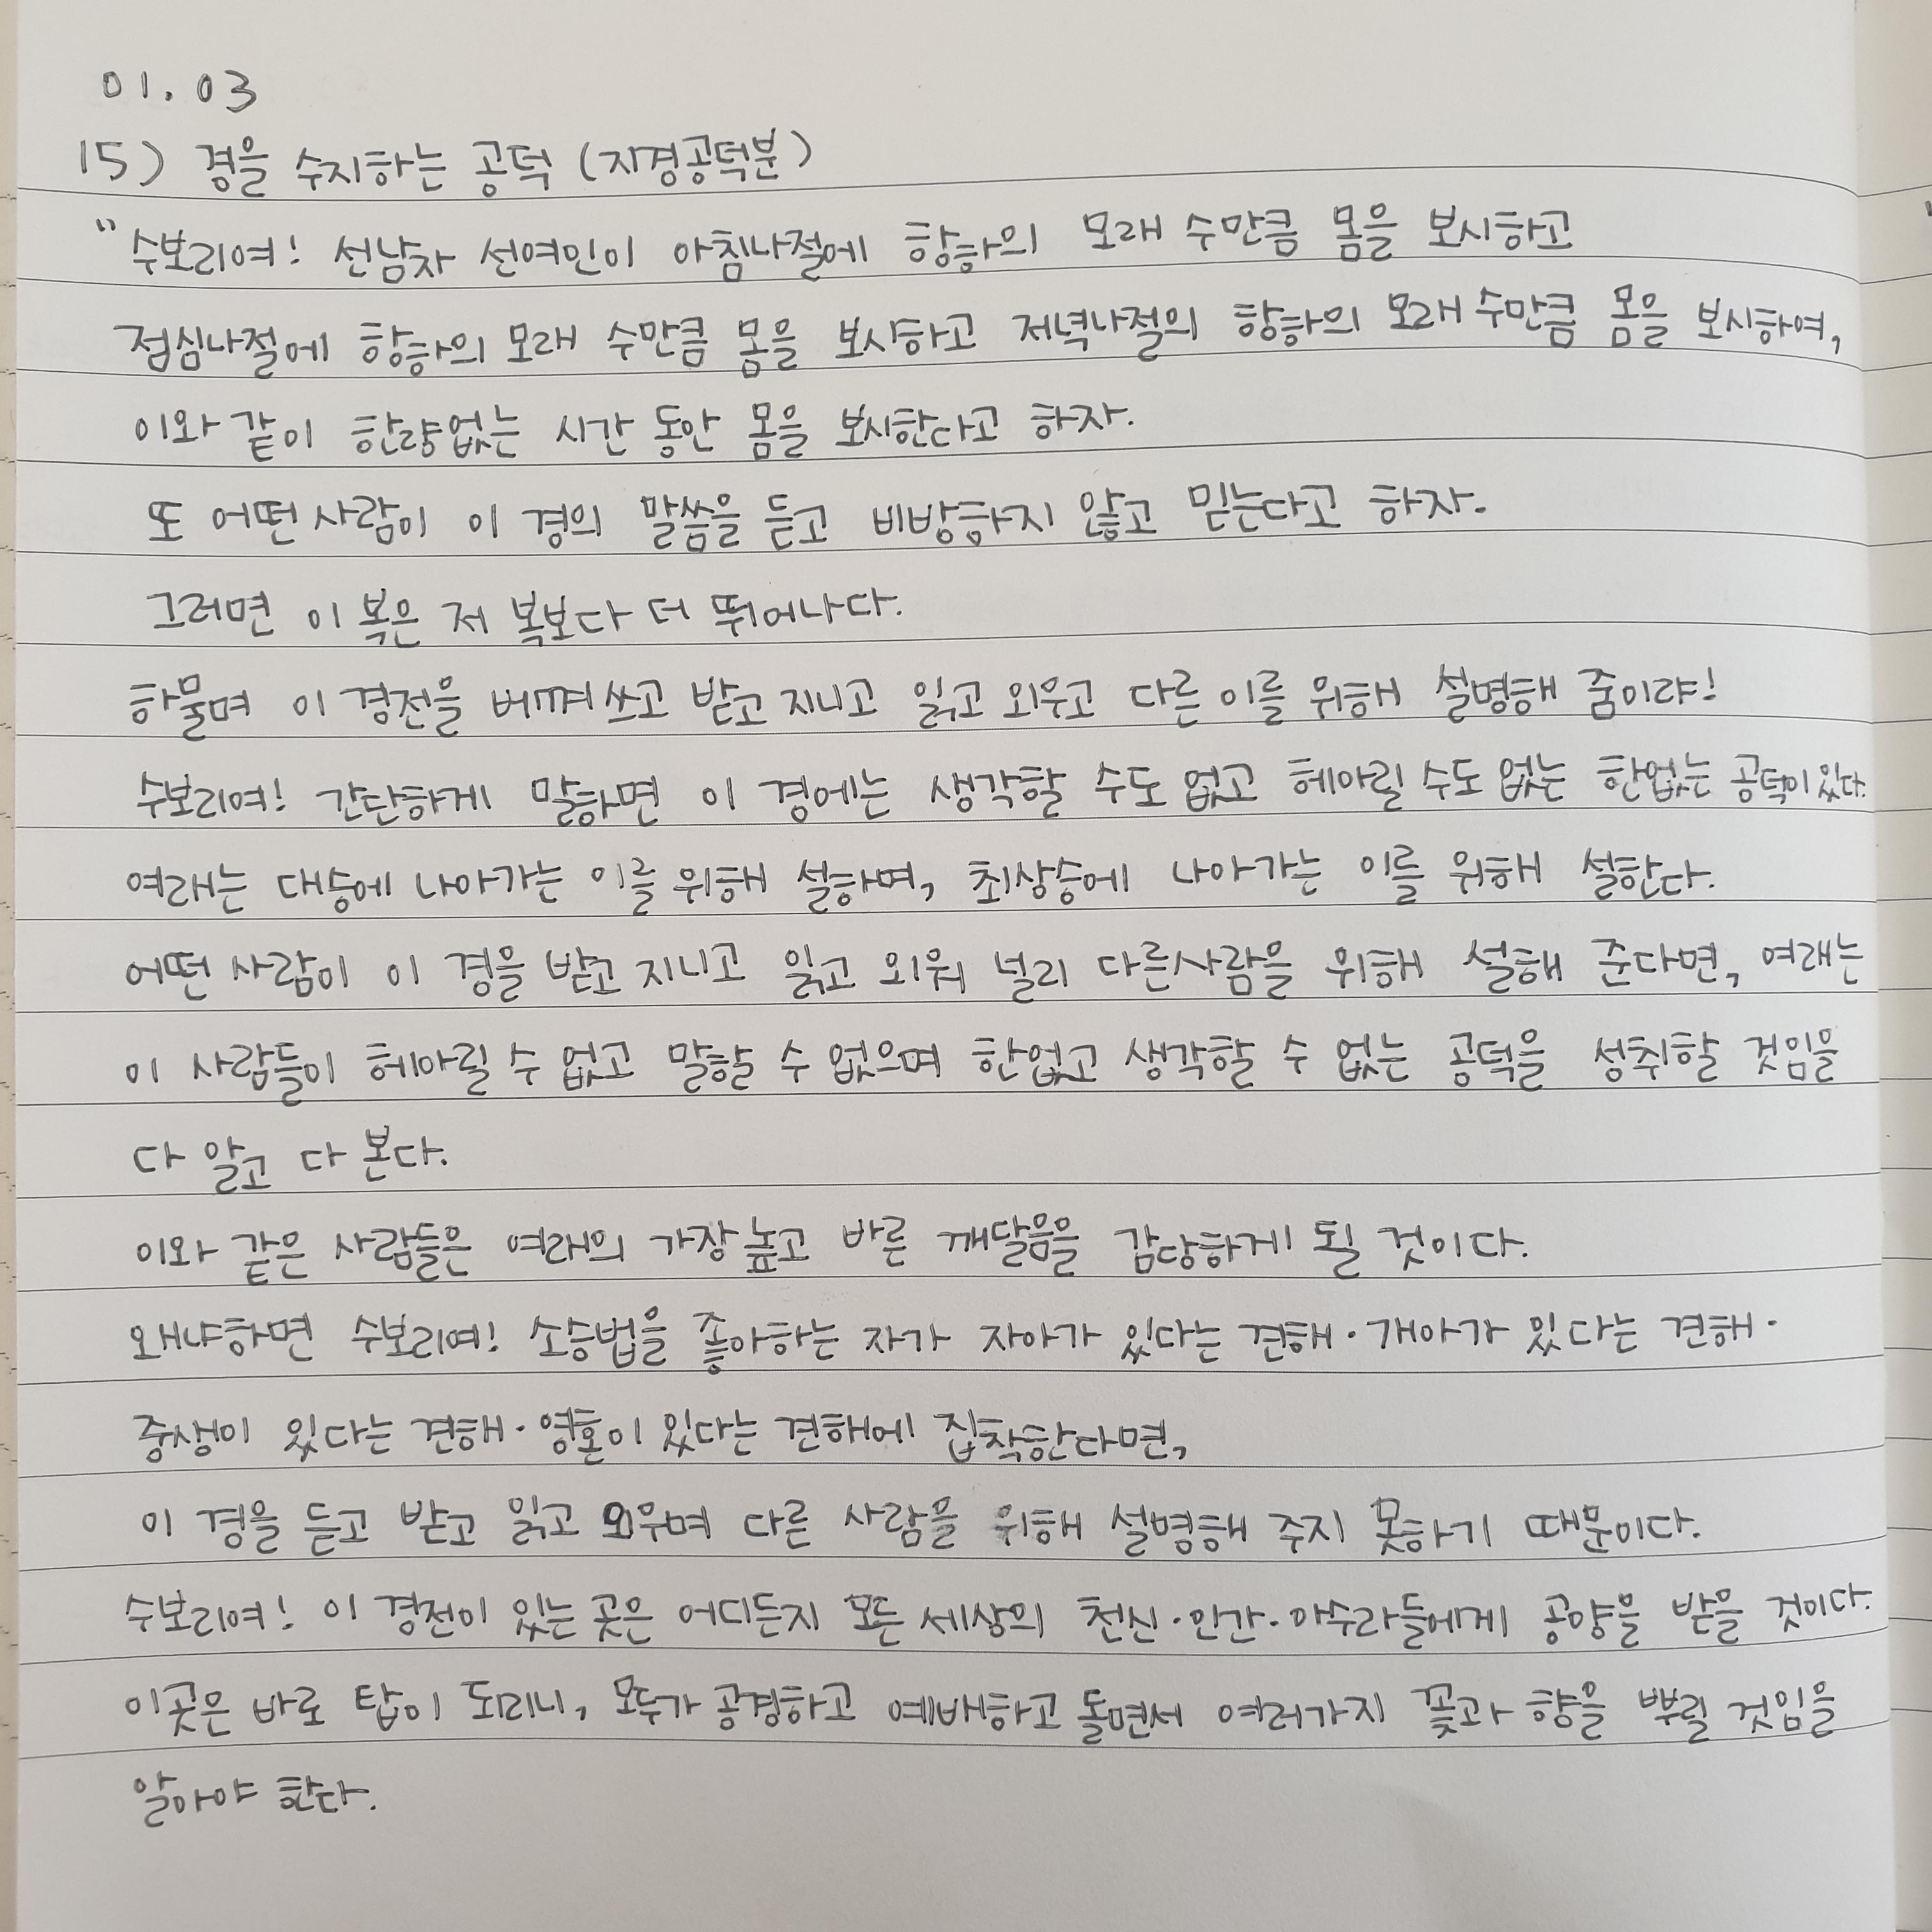 01. 03
15) 경을 수지하는 공덕 (지경공덕분)
"수보리여! 선남자 선여인이 아침나절에 항하의 모래 수만큼 몸을 보시하고
점심나절에 항하의 모래 수만큼 몸을 보시하고 저녁나절의 항하의 모래 수만큼 몸을 보시하여,
이와 같이 한량없는 시간 동안 몸을 보시한다고 하자.
또 어떤 사람이 이 경의 말씀을 듣고 비방하지 않고 믿는다고 하자.
그러면 이 복은 저 복보다 더 뛰어나다.
하물며 이 경전을 베껴쓰고 받고 지니고 읽고 외우고 다른 이를 위해 설명해 줌이랴!
수보리여! 간단하게 말하면 이 경에는 생각할 수도 없고 헤아릴 수도 없는 한없는 공덕이 있다.
여래는 대승에 나아가는 이를 위해 설하며, 최상승에 나아가는 이를 위해 설한다.
어떤 사람이 이 경을 받고 지니고 읽고 외워 널리 다른사람을 위해 설해 준다면, 여래는
이 사람들이 헤아릴 수 없고 말할 수 없으며 한없고 생각할 수 없는 공덕을 성취할 것임을
다 알고 다 본다.
이와 같은 사람들은 여래의 가장 높고 바른 깨달음을 감당하게 될 것이다.
왜냐하면 수보리여! 소승법을 좋아하는 자가 자아가 있다는 견해·개아가 있다는 견해·
중생이 있다는 견해·영혼이 있다는 견해에 집착한다면,
이 경을 듣고 받고 읽고 외우며 다른 사람을 위해 설명해 주지 못하기 때문이다.
수보리여! 이 경전이 있는 곳은 어디든지 모든 세상의 천신·인간·아수라들에게 공양을 받을 것이다.
이곳은 바로 탑이 되리니, 모두가 공경하고 예배하고 돌면서 여러가지 꽃과 향을 뿌릴 것임을
알아야 한다.